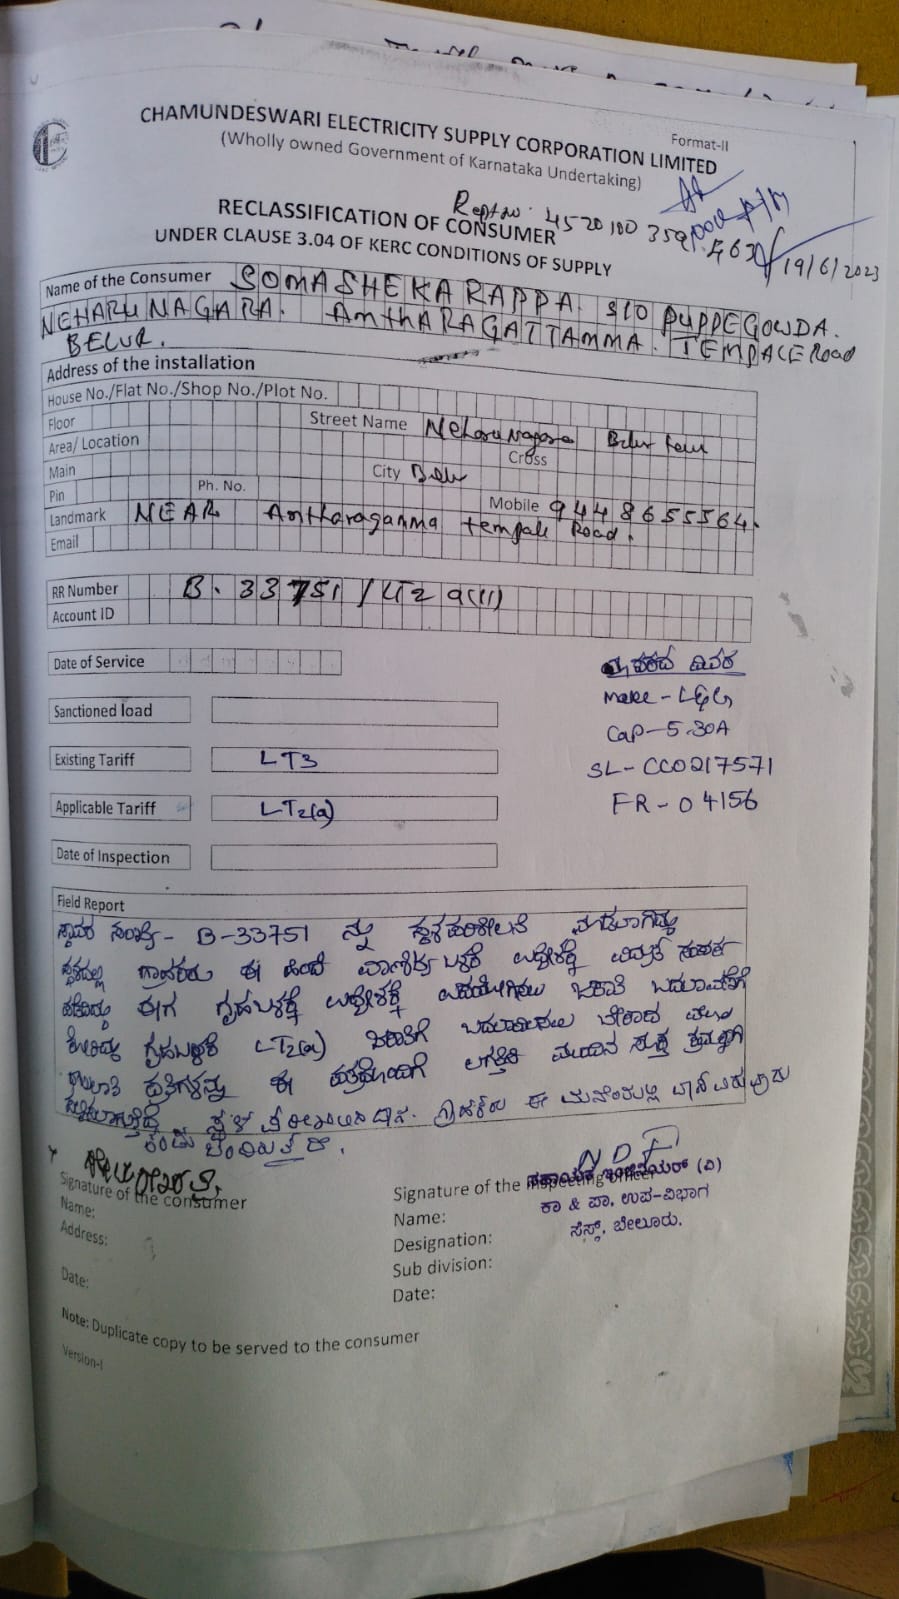 Format-II
CHAMUNDESWARI ELECTRICITY SUPPLY CORPORATION LIMITED
(Wholly owned Government of Karnataka Undertaking)
RECLASSIFICATION OF CONSUMER
UNDER CLAUSE 3.04 OF KERC CONDITIONS OF SUPPLY
19/6/2023
Name of the Consumer SOMASHEKARAPPA. S/O PUPPEGOWDA.
NEHARU NAGARA. AnthARAGATTAMMA. TEMPALE Road
BELUR.
Address of the installation
House No./Flat No./Shop No./Plot No.
Floor Street Name Neharu Nagara Belur town
Area/ Location Cross
Main City Belur
Pin Ph. No. Mobile 9448655564.
Landmark NEAR Antharagamma tempale Road.
Email
RR Number B.33751/LT2 a(ii)
Account ID
Date of Service
ಮಾಪಕದ ವಿವರ
Make - L&G
Sanctioned load
Cap - 5-30A
Existing Tariff LT3
SL - CC0217571
Applicable Tariff LT2(a)
FR - 04156
Date of Inspection
Field Report
ಸ್ಥಾವರ ಸಂಖ್ಯೆ - B-33751 ನ್ನು ಸ್ಥಳಪರಿಶೀಲನೆ ಮಾಡಲಾಗಿದ್ದು
ಸ್ಥಳದಲ್ಲಿ ಗ್ರಾಹಕರು ಈ ಹಿಂದೆ ವಾಣಿಜ್ಯ ಬಳಕೆ ಉದ್ದೇಶಕ್ಕೆ ವಿದ್ಯುತ್ ಸಂಪರ್ಕ
ಪಡೆದಿದ್ದು ಈಗ ಗೃಹಬಳಕೆ ಉದ್ದೇಶಕ್ಕೆ ಜಕಾತಿ ಬದಲಾವಣೆಗೆ
ಕೋರಿದ್ದು ಗೃಹಬಳಕೆ LT2(a) ಜಕಾತಿಗೆ ಬದಲಾಯಿಸಲು ಬೇಕಾದ
ಈ ಪತ್ರದೊಂದಿಗೆ ಲಗತ್ತಿಸಿ ಮುಂದಿನ ಸೂಕ್ತ ಕ್ರಮಕ್ಕಾಗಿ
ಗ್ರಾಹಕರು ಈ ಮನೆಯಲ್ಲಿ
ಕಂಡು ಬಂದಿರುತ್ತದೆ.
Signature of the consumer
Name:
Address:
Date:
Signature of the Inspecting Officer
ಸಹಾಯಕ ಇಂಜಿನಿಯರ್ (ವಿ)
Name:
ಕಾ & ಪಾ. ಉಪ-ವಿಭಾಗ
Designation:
ಸೆಸ್ಕ್, ಬೇಲೂರು.
Sub division:
Date:
Note: Duplicate copy to be served to the consumer
Version-I